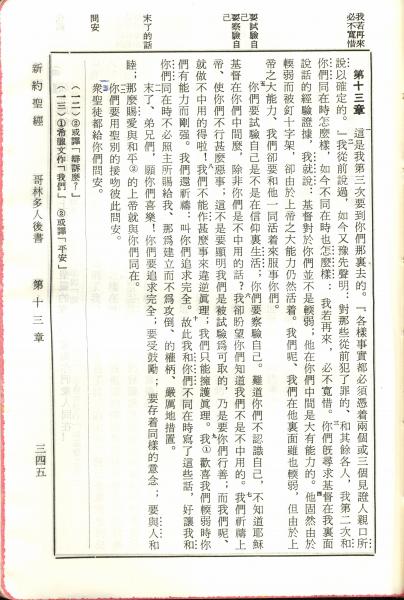 我若再來
必不寬惜
第十三章　這是我第三次要到你們那裏去的。『各樣事實都必須憑着兩個或三個見證人親口所
說以確定的。』我從前說過、如今又豫先聲明：對那些從前犯了罪的、和其餘各人，我第二次和
你們同在時怎麼樣，如今不同在時也怎麼樣：我若再來，必不寬惜。你們旣尋求基督在我裏面
說話的經驗證據，我就說：基督對於你們並不是輭弱；他在你們中間是大有能力的。他固然由於
輭弱而被釘十字架，卻由於上帝之大能力仍然活着。我們呢、我們在他裏面雖也輭弱，但由於上
帝之大能力、我們卻要和他一同活着來服事你們。
要試驗自
己
要察驗自
己
你們要試驗自己是不是在信仰裏生活；你們要察驗自己。難道你們不認識自己，不知道耶穌
基督在你們中間麼，除非你們是不中用的話？我卻盼望你們知道我們不是不中用的。我們祈禱上
帝、使你們不行甚麼惡事；這不是要顯明我們是被試驗爲可取的，乃是要你們行善；而我們呢、
就做不中用的得啦！我們不能作甚麼事來違逆眞理；我們只能擁護眞理。我①歡喜我們輭弱時你
們有能力而剛强。我們還祈禱：叫你們追求完全。故此我和你們不同在時寫了這些話，好讓我和
你們同在時不必照主所賜給我、那爲建立而不爲攻倒、的權柄、嚴厲地措置。
末了的話
末了、弟兄們，願你們喜樂！你們要追求完全；要受鼓勵；要存着同樣的意念；要與人和
睦；那麼賜愛與和平②的上帝就與你們同在。
問安
你們要用聖別的接吻彼此問安。
衆聖徒都給你們問安。
（一二）②或譯『辯訴麼？』
（一三）①希臘文作『我們』。②或譯『平安』
新約聖經　哥林多人後書　第十三章　三四五